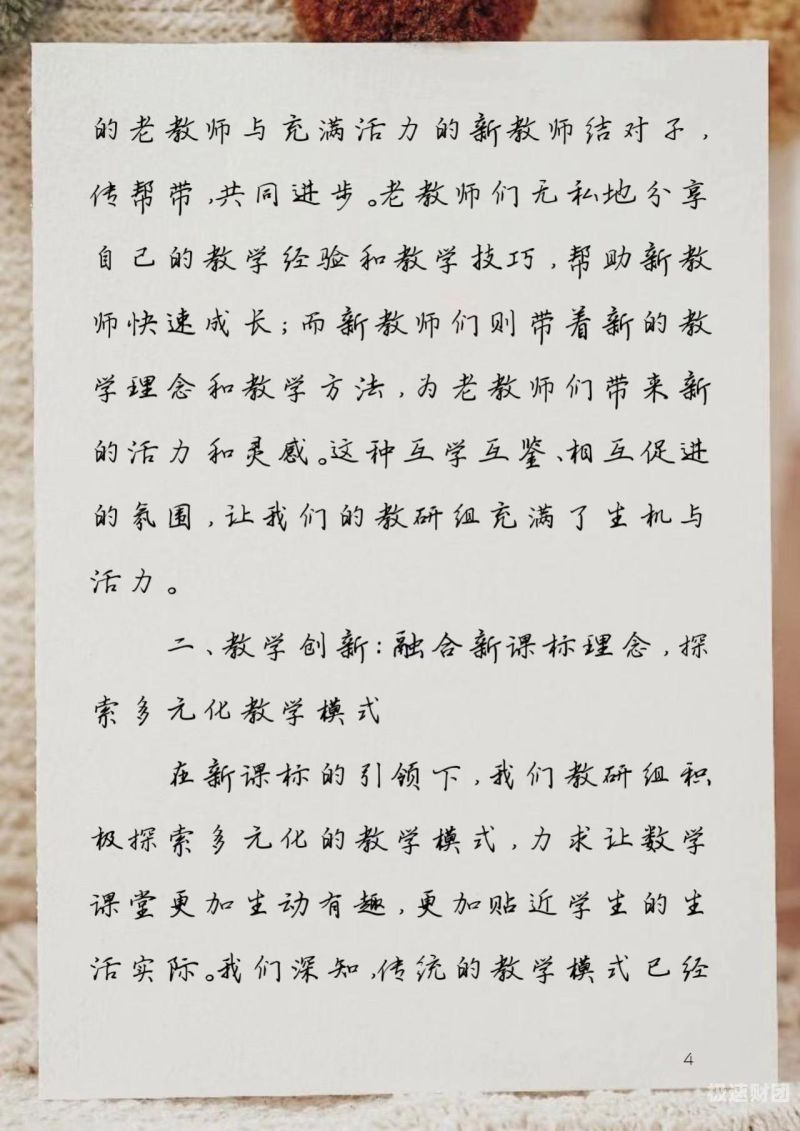 的老教师与充满活力的新教师结对子，
传帮带，共同进步。老教师们无私地分享
自己的教学经验和教学技巧，帮助新教
师快速成长；而新教师们则带着新的教
学理念和教学方法，为老教师们带来新
的活力和灵感。这种互学互鉴、相互促进
的氛围，让我们的教研组充满了生机与
活力。
二、教学创新：融合新课标理念，探
索多元化教学模式
在新课标的引领下，我们教研组积
极探索多元化的教学模式，力求让数学
课堂更加生动有趣，更加贴近学生的生
活实际。我们深知，传统的教学模式已经
4
极速财团